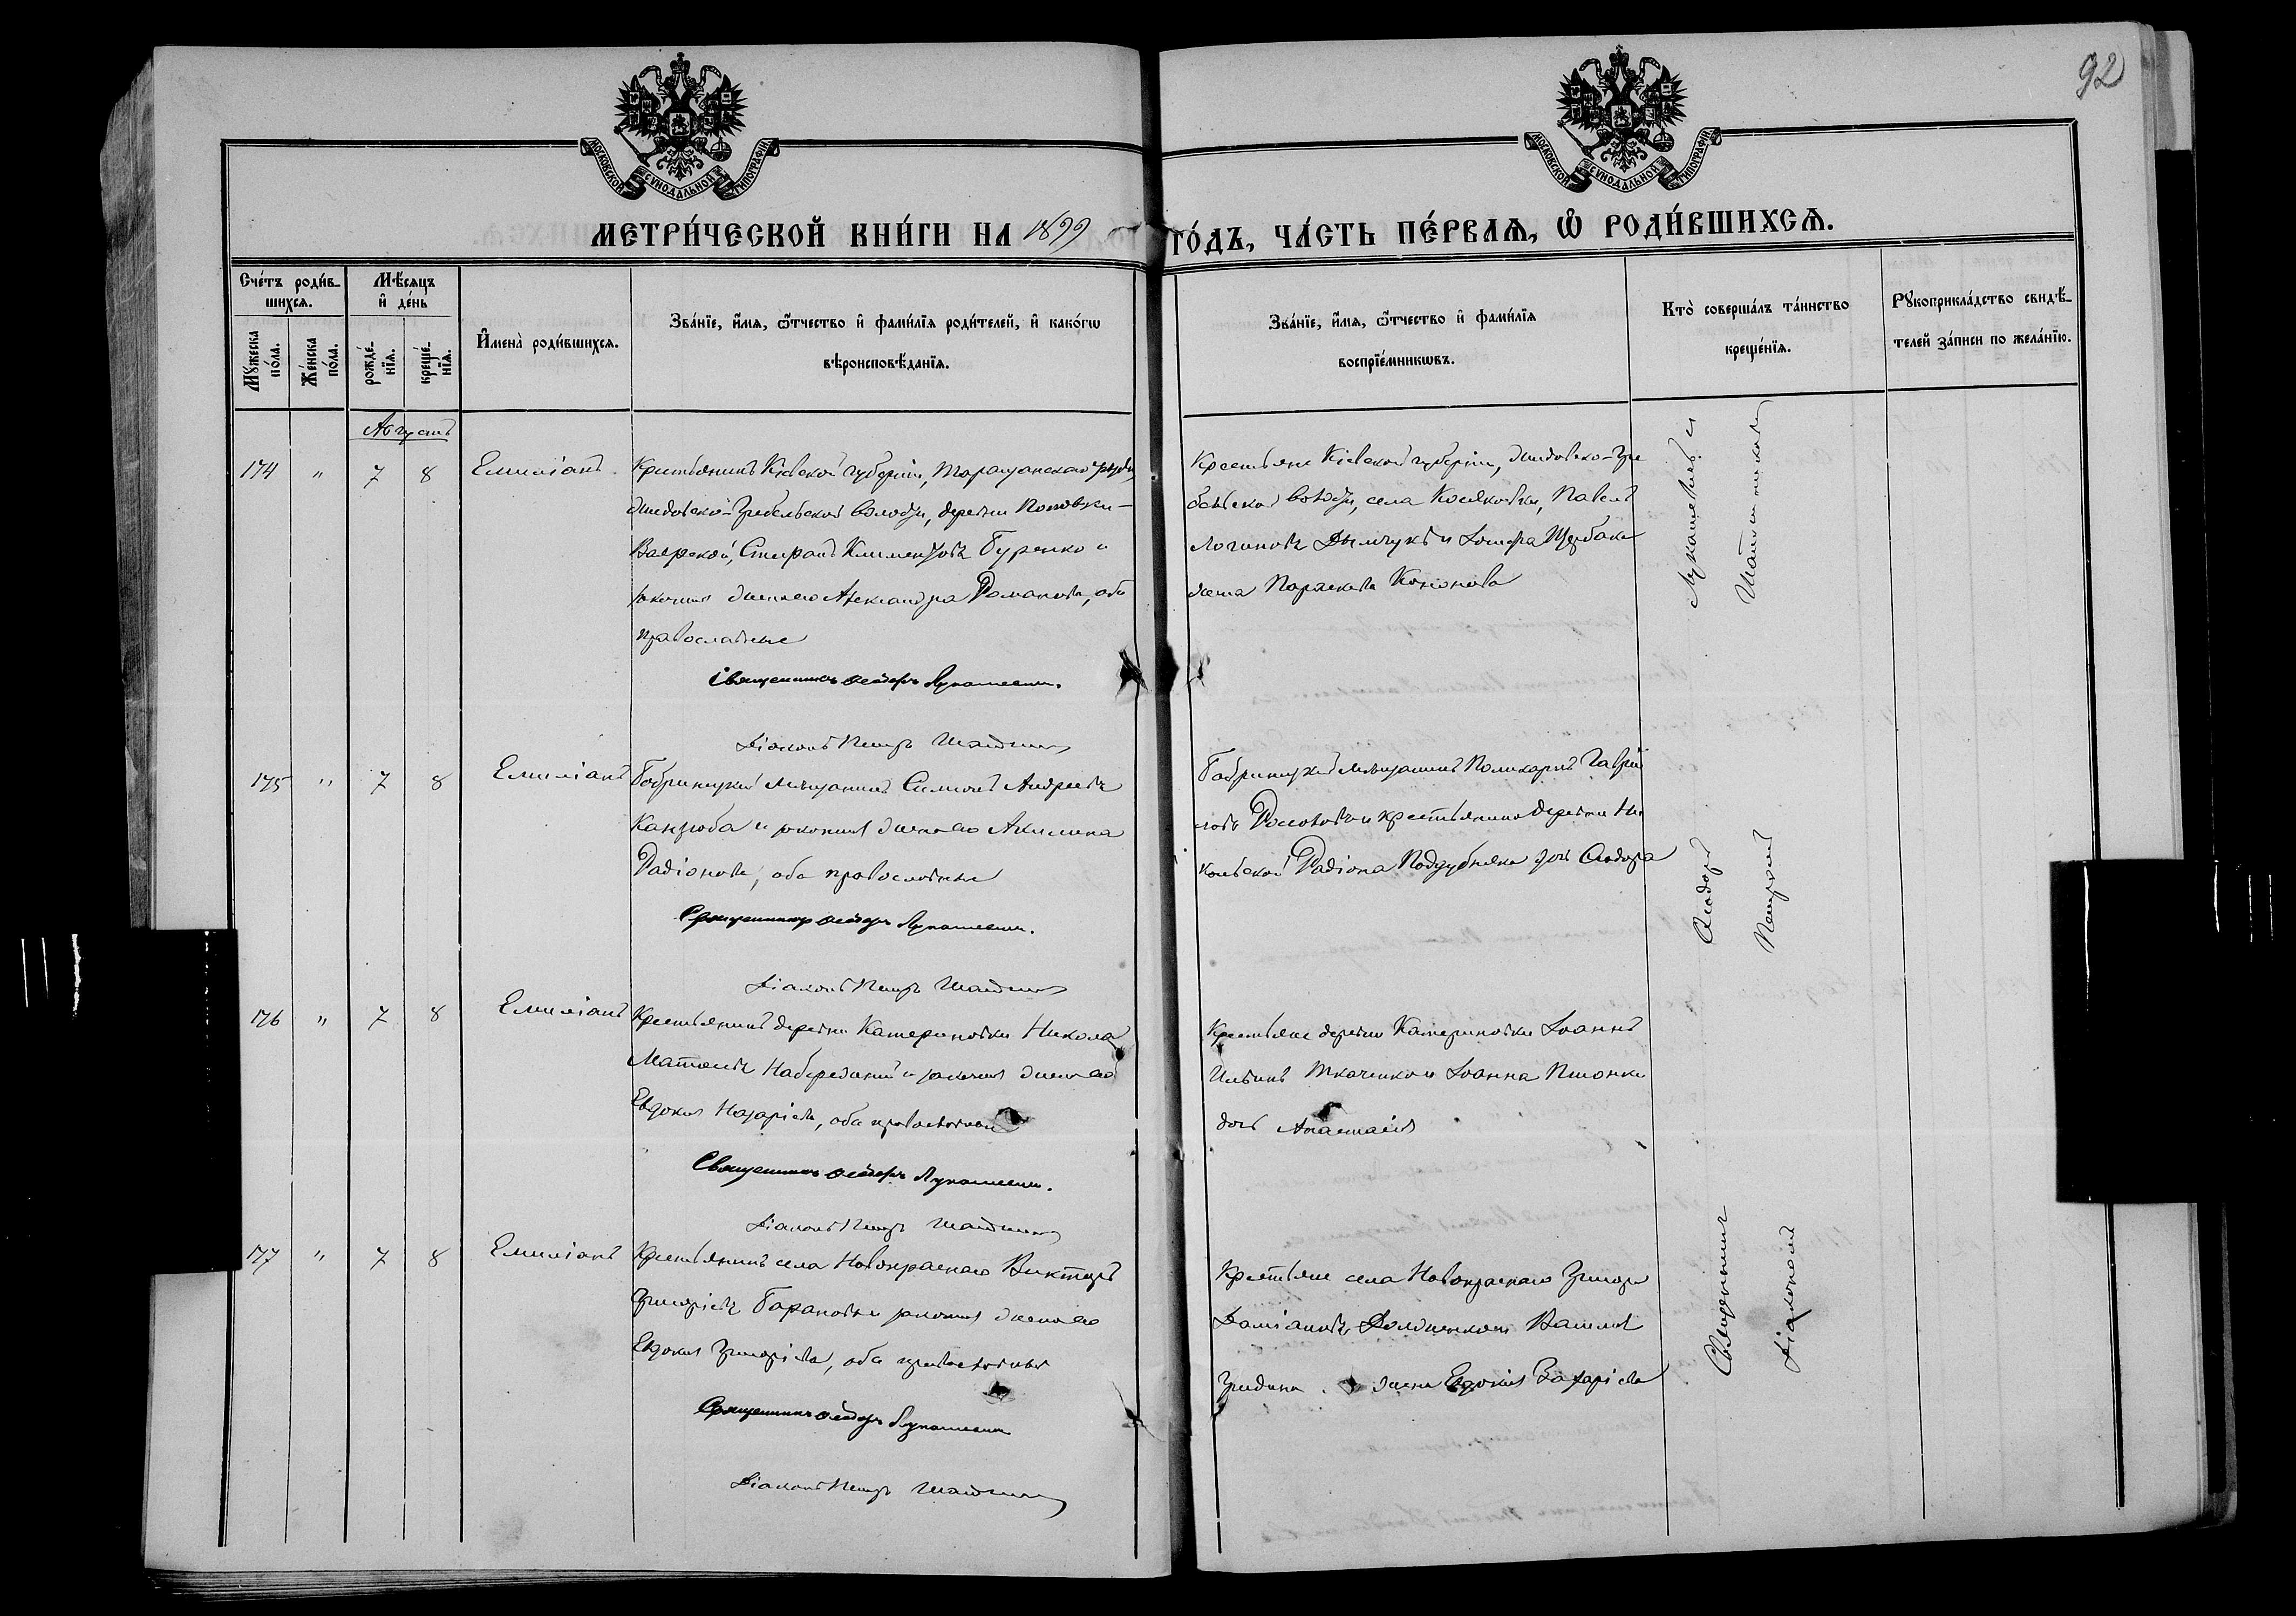 92
МОСКОВСКОЙ СУНОДАЛЬНОЙ ТИПОГРАФІИ
МОСКОВСКОЙ СУНОДАЛЬНОЙ ТИПОГРАФІИ
МЕТРИ́ЧЕСКОЙ КНИ́ГИ НА 1899 ГО́ДЪ, ЧА́СТЬ ПЕ́РВАѦ, Ѽ РОДИ́ВШИХСѦ.
Сче́тъ роди́в-
шихсѧ.
Мꙋжеска по́ла.
Же́нска по́ла.
Мѣ́сѧцъ
и҆ де́нь
рожде́-
нїѧ.
креще́-
нїѧ.
И҆мена̀ роди́вшихсѧ.
Зва́нїе, и҆́мѧ, ѻ҆́тчество и҆ фами́лїѧ роди́телей, и҆ како́гѡ
вѣроисповѣ́данїѧ.
Зва́нїе, и҆́мѧ, ѻ҆́тчество и҆ фами́лїѧ
воспрїе́мникѡвъ.
Кто̀ соверша́лъ та́инство
креще́нїѧ.
Рꙋкоприкла́дство свидѣ́-
телей за́писи по жела́нїю.
Августъ
174 " 7 8 Емиліанъ
Крестьянинъ Кіевской губерніи, Таращанскаго уѣзда,
Жидовско-Гребельской волости, деревни
Стефанъ Климентовъ Буренко и
законная жена его Александра Романова, оба
православные
Священникъ Ѳеодоръ Лукашевичъ.
Діаконъ Петръ
Крестьяне Кіевской губерніи, Жидовско-Гре
бельской волости, села Косяковки, Павелъ
Логиновъ и Іосифа Щербака
жена Параскева Кононова
175 " 7 8 Емиліанъ
Бобринецкій мѣщанинъ Симеонъ Андреевъ
Канзюба и законная жена его Акилина
Радіонова, оба православные
Священникъ Ѳеодоръ Лукашевичъ.
Діаконъ Петръ
Бобринецкій мѣщанинъ Поликарпъ Гаврій
ловъ и крестьянина деревни Ни
кольской Радіона Поддубняка дочь Ѳеодора
176 " 7 8 Емиліанъ
Крестьянинъ деревни Катериновки Николай
Матѳеевъ Набережный и законная жена его
Евдокія Назаріева, оба православные
Священникъ Ѳеодоръ Лукашевичъ.
Діаконъ Петръ
Крестьяне деревни Катериновки Іоаннъ
Ильинъ Ткаченко и Іоанна Пшонки
дочь Анастасія
177 " 7 8 Емиліанъ
Крестьянинъ села Новокраснаго Викторъ
Григоріевъ и законная жена его
Евдокія Григоріева, оба православные
Священникъ Ѳеодоръ Лукашевичъ
Діаконъ Петръ
Крестьяне села Новокраснаго Григорій
Даміановъ и
жена Евдокія Захаріева
Священникъ
Ѳеодоръ
Лукашевичъ и
Діаконъ
Петръ